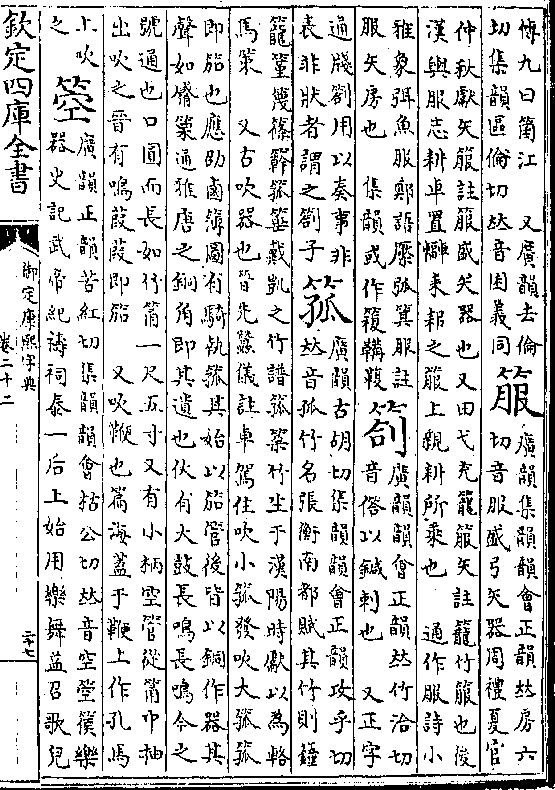 傳九曰箘江　又廣韻去倫
切集韻區倫切𠀤音囷義同　箙　廣韻集韻韻會正韻𠀤房六
切音服盛弓矢器周禮夏官
仲秋獻矢箙註箙盛矢器也又田弋充籠箙矢註籠竹箙也後
漢輿服志耕車置𨏉耒耜之箙上親耕所乘也　通作服詩小
雅象弭魚服鄭語檿弧箕服註
服矢房也　集韻或作𥴨鞴鞁　劄　廣韻韻會正韻𠀤竹洽切
音偺以鍼刺也　又正字
通牋劄用以奏事非
表非狀者謂之劄子　箛　廣韻古胡切集韻韻會正韻攻乎切
𠀤音孤竹名張衡南都賦其竹則鐘
籠䈽篾篠簳箛箠戴凱之竹譜箛䇲竹生于漢陽時獻以為輅
馬策　又古吹器也晉先蠶儀註車駕住吹小箛發吹大箛箛
即笳也應劭鹵簿圖有騎執箛其始以笳管後皆以銅作器其
聲如觱篥通雅唐之銅角即其遺也伙有大鼓長鳴長鳴今之
號通也口圓而長如竹筩一尺五寸又有小柄空管從筩巾抽
出吹之晉有鳴葭葭即笳　又吹鞭也篇海葢于鞭上作孔馬
之
上吹　箜　廣韻正韻苦紅切集韻韻會枯公切𠀤音空箜篌樂
器史記武帝紀禱祠泰一后土始用樂舞益召歌兒
欽定四庫全書
御定康熙字典
卷二十二
三七